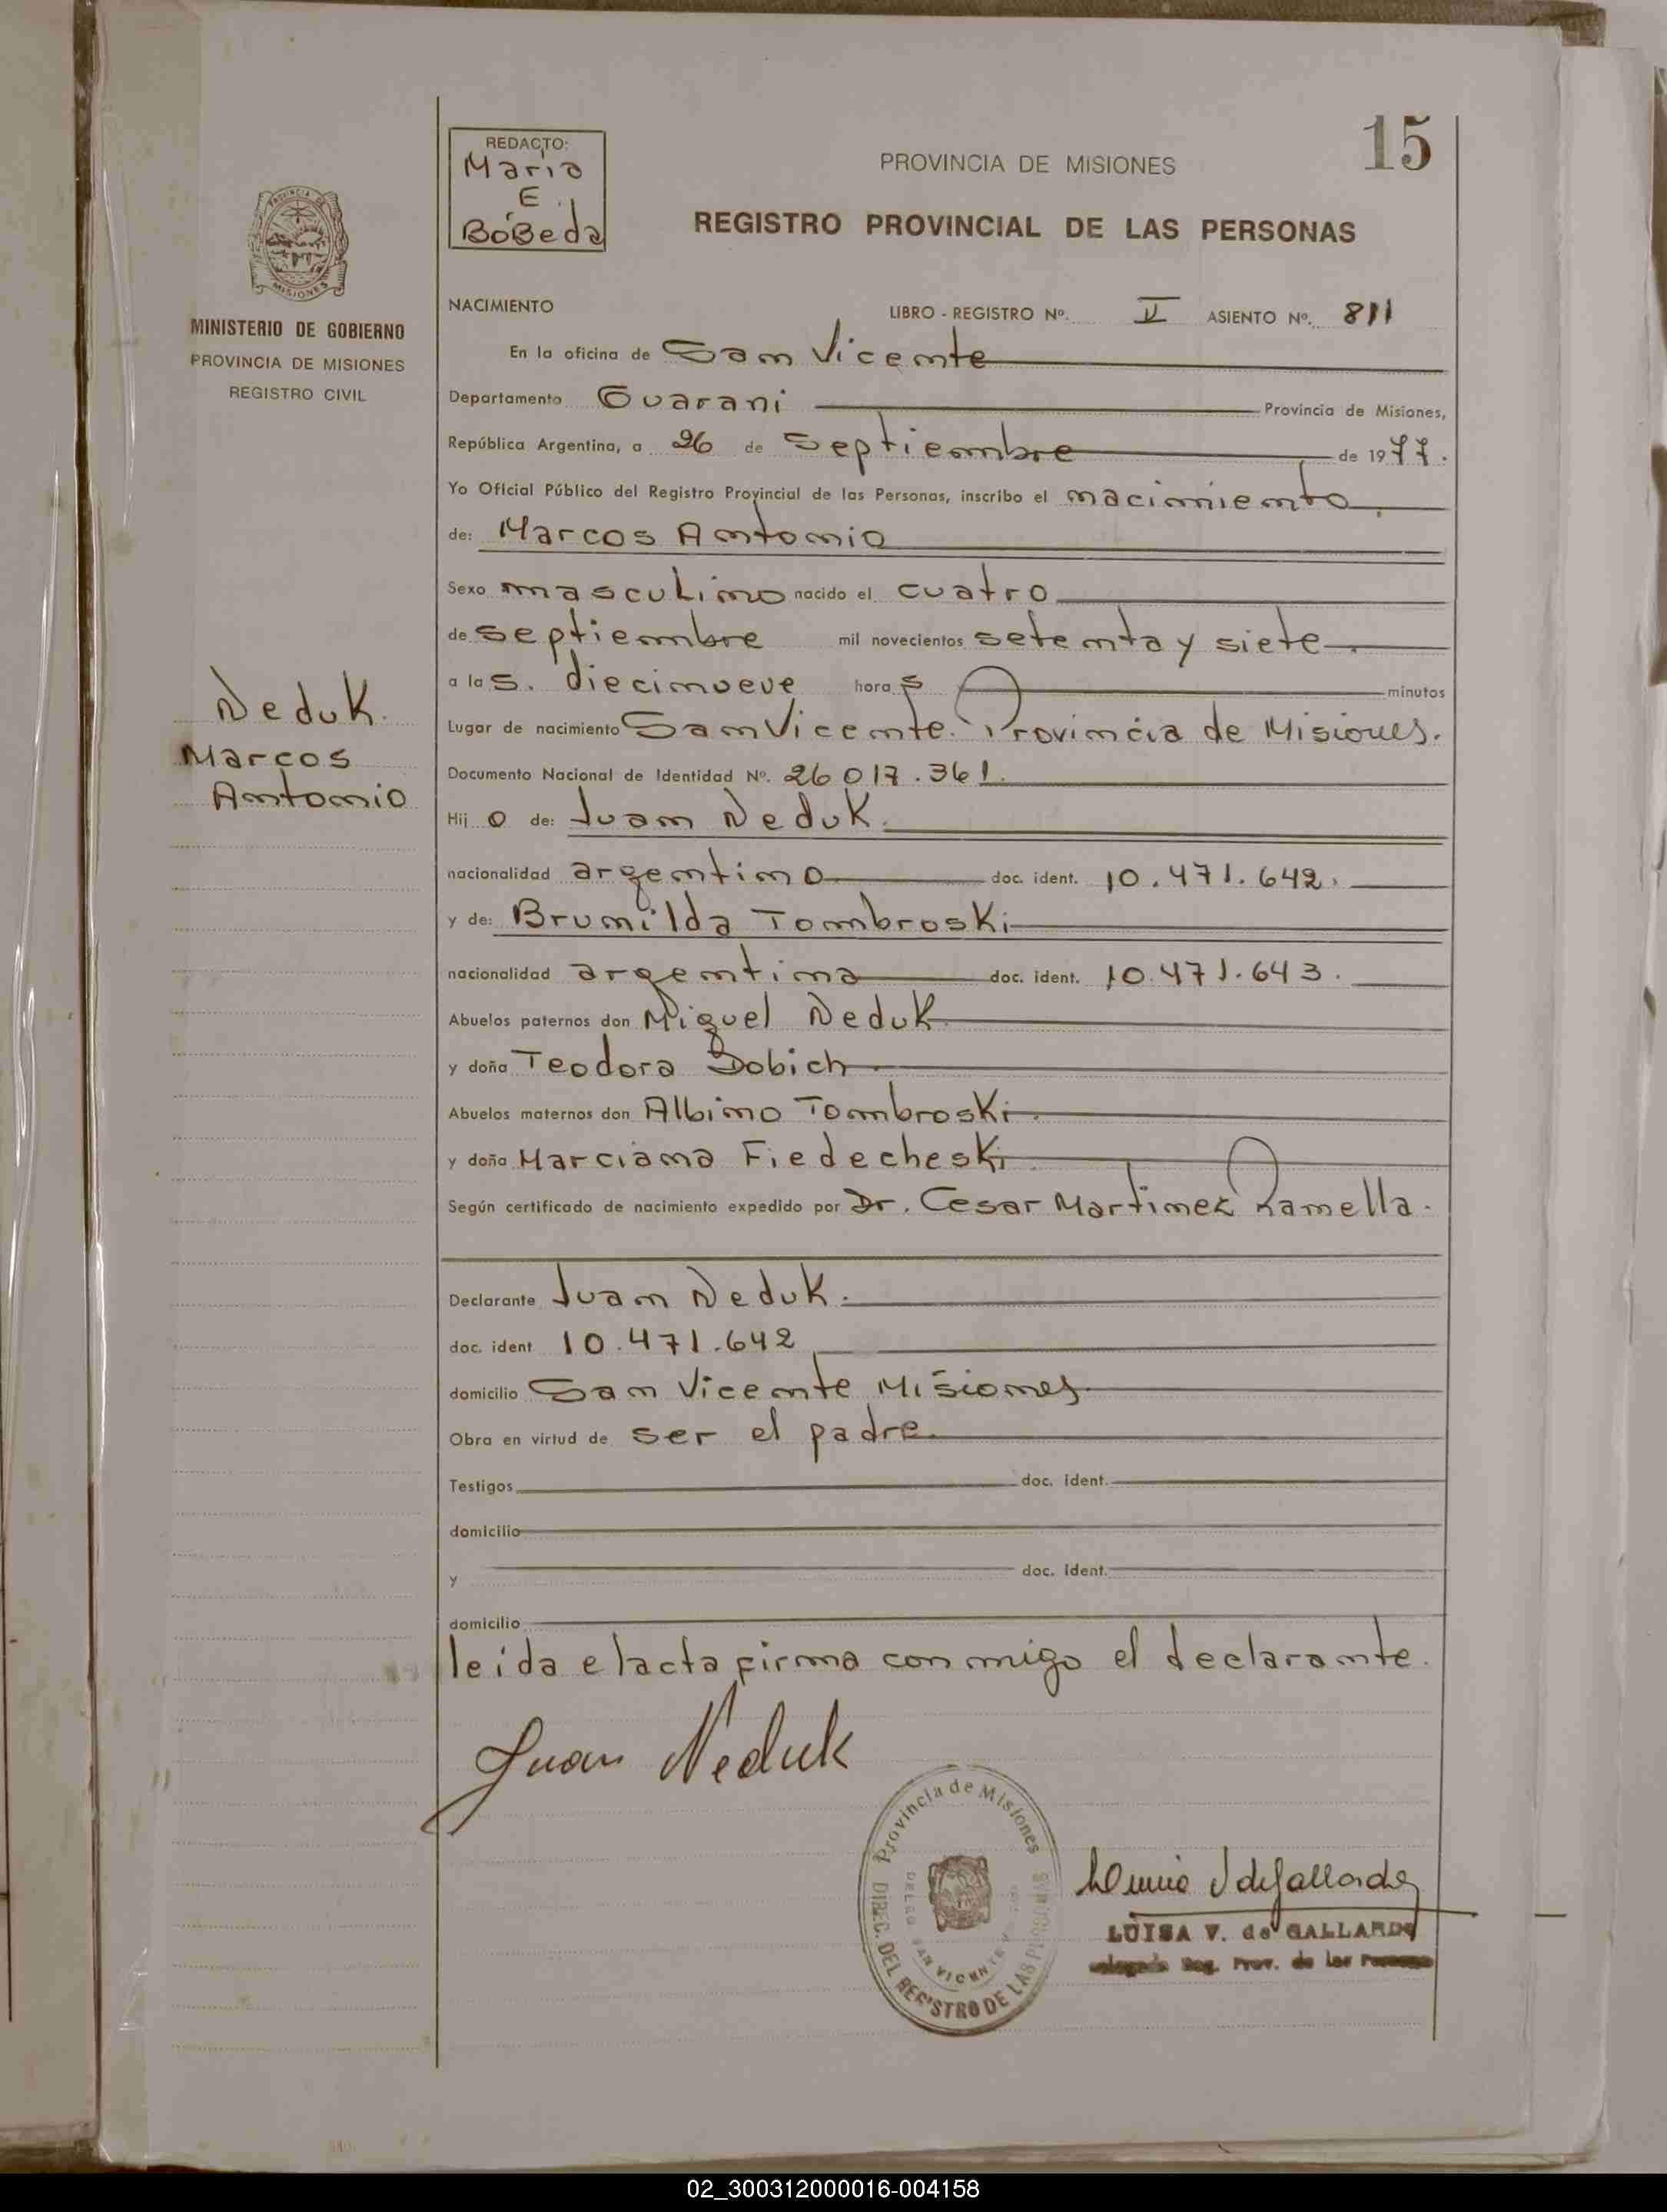 15
REDACTO:
Maria
E.
BóBeda
PROVINCIA DE MISIONES
REGISTRO PROVINCIAL DE LAS PERSONAS
PROVINCIA DE
MISIONES
MINISTERIO DE GOBIERNO
PROVINCIA DE MISIONES
REGISTRO CIVIL
Neduk.
Marcos
Antonio
NACIMIENTO LIBRO - REGISTRO Nº. II ASIENTO Nº. 811
En la oficina de San Vicente
Departamento Guarani Provincia de Misiones,
República Argentina, a 26 de Septiembre de 1977.
Yo Oficial Público del Registro Provincial de las Personas, inscribo el nacimiento.
de: Marcos Antonio
Sexo masculino nacido el cuatro
de septiembre mil novecientos setenta y siete.
a las. diecinueve horas minutos
Lugar de nacimiento San Vicente. Provincia de Misiones.
Documento Nacional de Identidad Nº. 26 017.361.
Hijo de: Juan Neduk.
nacionalidad argentino doc. ident. 10.471.642.
y de: Brunilda Tombroski
nacionalidad argentina doc. ident. 10.471.643.
Abuelos paternos don Miguel Neduk
y doña Teodora Dobich.
Abuelos maternos don Albino Tombroski.
y doña Marciana Fiedecheski.
Según certificado de nacimiento expedido por Dr. Cesar Martinez Ramella.
Declarante Juan Neduk.
doc. ident 10.471.642
domicilio San Vicente Misiones
Obra en virtud de ser el padre.
Testigos doc. ident.
domicilio
y doc. Ident.
domicilio
leída el acta firma con migo el declarante.
Juan Neduk
Provincia de Misiones
DIREC. DEL REGISTRO DE LAS PERSONAS
SAN VICENTE
LUISA V. de GALLARDO
Reg. Prov. de las Personas
02_300312000016-004158